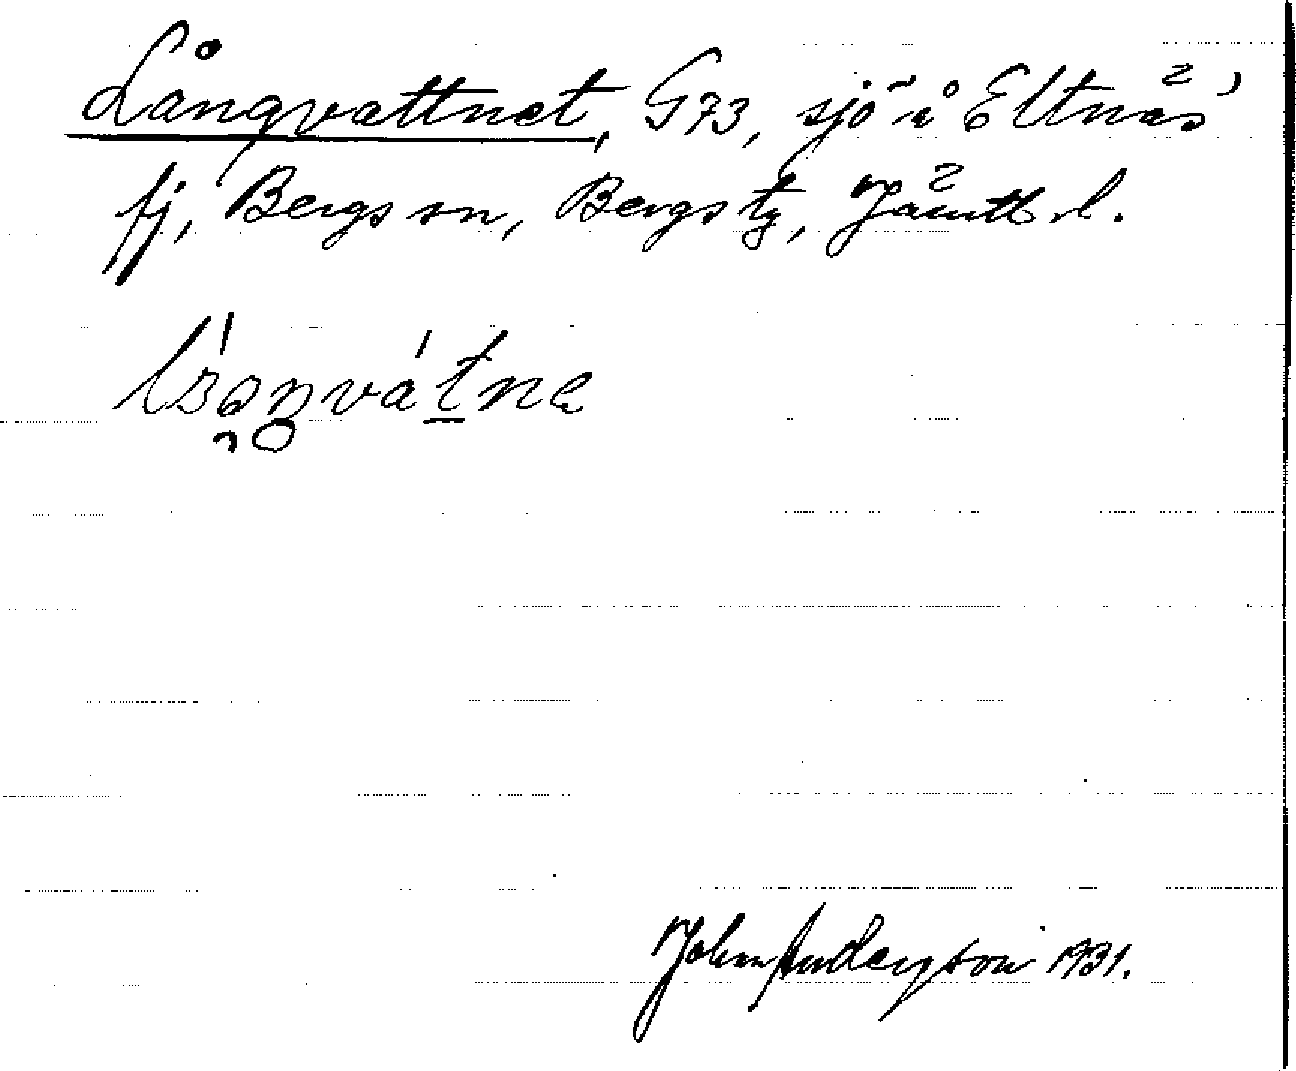 Långvattnet, G73, sjö i Eltnäs
fj, Bergs sn, Bergs tg, Jämtl. l.
John Anderzson 1931.